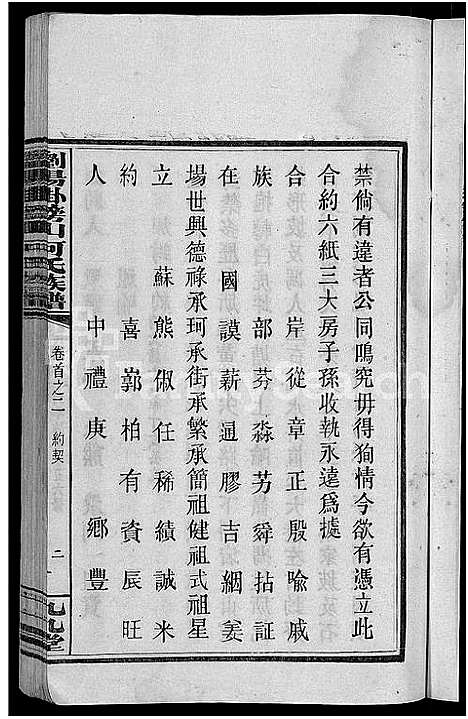 禁倘有違者公同鳴究毋得狥情今欲有憑立此
合約六紙三大房子孫收執永遠爲據
合形　岸從章正殷喻戚
族　部芬上淼芳舜拈証
在　國謨薪央通膠吉絪姜
場世興德祿承珂承街承繁承簡祖健祖式祖星
立　蘇熊俶任稀績誠米
約　喜鄣柏有資辰旺
人　中禮庚鄉豐
瀏陽卦旁山何氏族譜
卷首之二　約契
二
九九堂